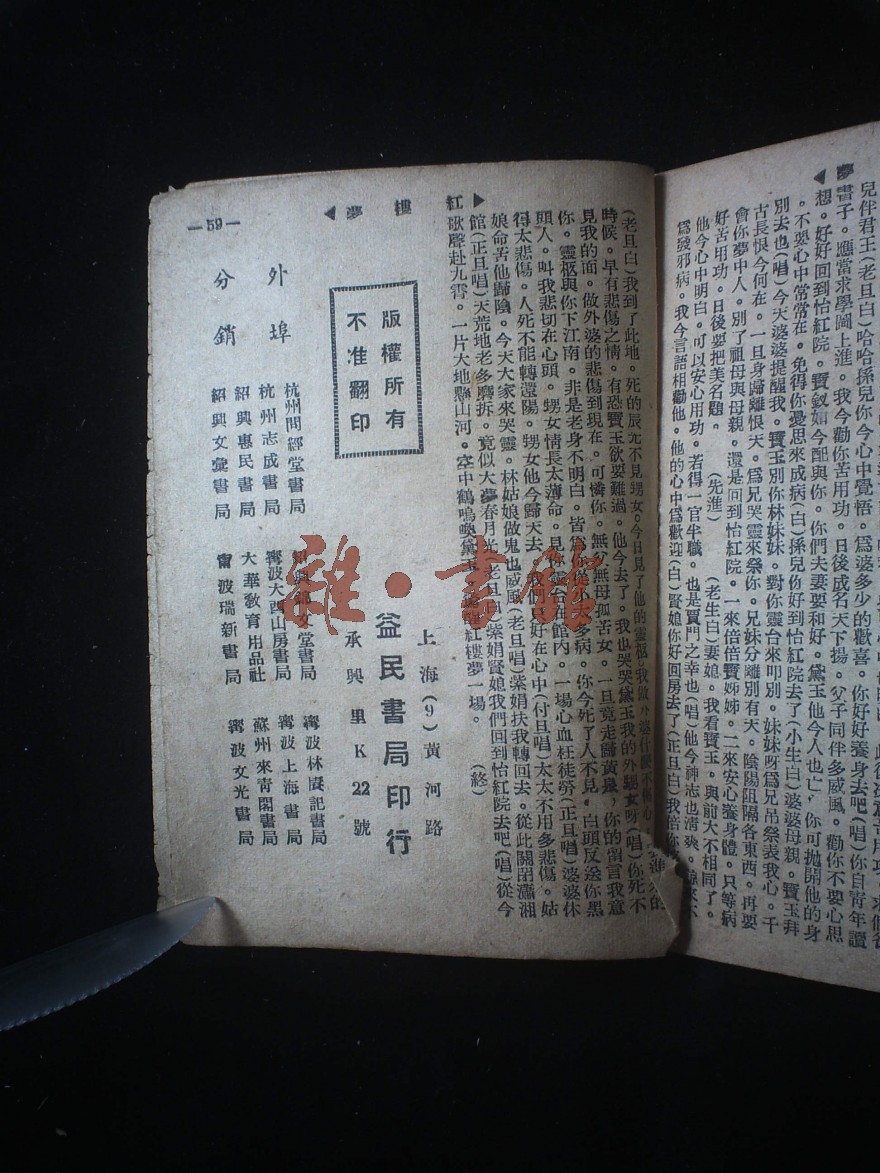 夢
兒伴君王(老旦白)哈哈孫兒你今心中覺悟。爲婆多少的歡喜。你好好養身去吧(唱)你自青年讀
書子。應當求學圖上進。我今勸你苦用功。日後成名天下揚。父子同伴多威風。勸你不要心思
想。好好回到怡紅院。寶釵如今配與你。你們夫妻要和好。黛玉他今人也亡。你可拋開他的身
。不要心中常常在。免得你憂思來成病(白)孫兒你好到怡紅院去了(小生白)婆婆母親。寶玉拜
別去也(唱)今天婆婆提醒我。寶玉別你林妹妹。對你靈台來叩別。妹妹呀爲兄吊祭表我心。千
古長恨今何在。一旦身歸離恨天。爲兄哭靈來祭你。兄妹分離別有天。陰陽阻隔各東西。再要
會你夢中人。別了祖母與母親。還是回到怡紅院。一來倍倍寶姊姊。二來安心養身體。只等病
好苦用功。日後要把美名題。(先進)(老生白)妻媳。我看寶玉。與前大不相同了。
他今心中明白。可以安心用功。若得一官半職。也是賈門之幸也(唱)他今神志也淸爽。
爲發邪病。我今言語相勸他。他的心中爲歡迎(白)賢媳你好回房去了(正旦白)我倍你
(老旦白)我到了此地。死的辰光不見甥女。今日見了他的靈柩。我做外婆
時候。早有悲傷之情。有恐寶玉欲要難過。他今去了。我也哭哭黛玉我的外甥女呀(唱)你死不
見我的面。做外婆的悲傷到現在。可憐你。無父無母孤苦女。一旦竟走歸黃泉。你的留言我意
你。靈柩與你下江南。非是老身不明白。皆爲你從小太多病。你今死了人不見。白頭反送你黑
頭人。叫我悲切在心頭。甥女情長太薄命。見你靈台在館內。一場心血枉徒勞(正旦唱)婆婆休
得太悲傷。人死不能轉還陽。甥女他今歸天去。我們只好在心中(付旦唱)太太不用多悲傷。姑
娘命苦他歸陰。今天大家來哭靈。林姑娘做鬼也威風(老旦唱)紫娟扶我轉回去。從此關閉瀟湘
館(正旦唱)天荒地老多磨拆。竟似大夢春月光(老旦白)紫娟賢媳我們回到怡紅院去吧(唱)從今
歌聲赴九霄。一片大地懸山河。空中鶴鳴喚黛玉。紅樓夢一場。(終)
紅樓夢
版權所有
不准翻印
上海(9)黃河路
益民書局印行
承興里K22號
外埠
分銷
杭州問經堂書局
杭州志成書局
紹興惠民書局
紹興文彙書局
紹興錦文堂書局
寗波大酉山房書局
大華敎育用品社
甯波瑞新書局
寗波林賡記書局
寗波上海書局
蘇州來靑閣書局
寗波文光書局
—59—
雜·書館